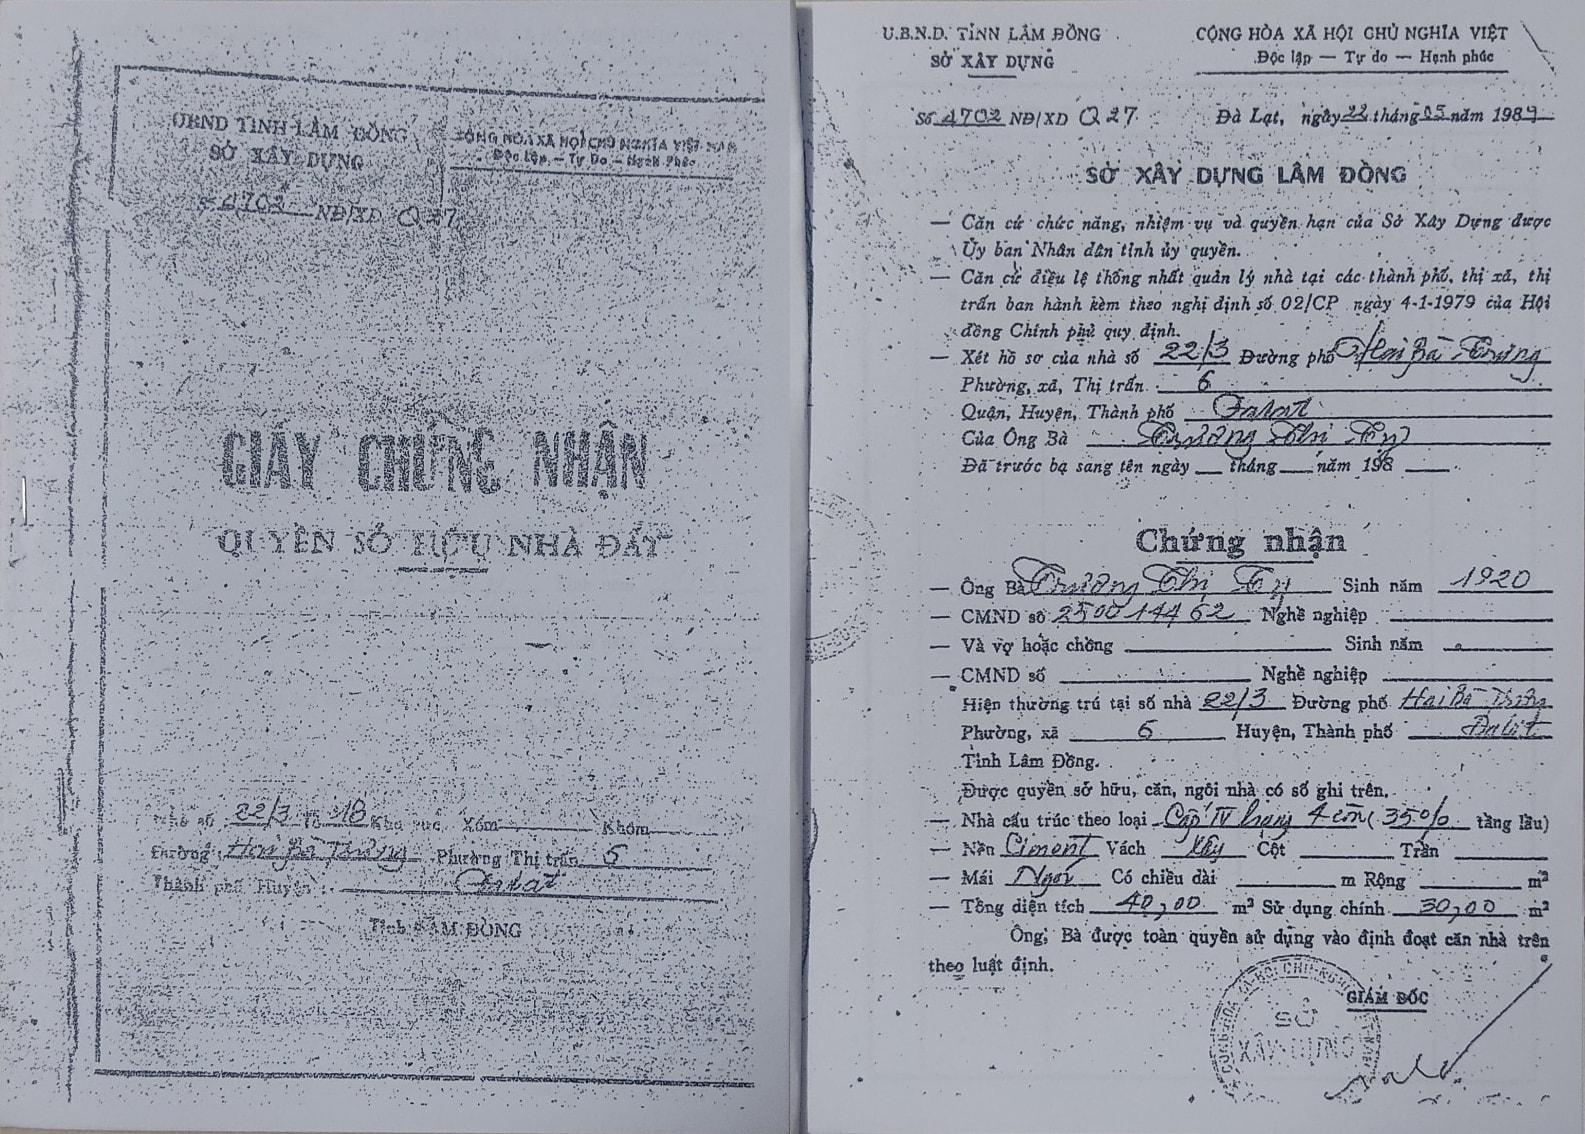 UBND TỈNH LÂM ĐỒNG
SỞ XÂY DỰNG
CỘNG HÒA XÃ HỘI CHỦ NGHĨA VIỆT NAM
Độc Lập — Tự Do — Hạnh Phúc
Số 4702 NĐ/XD Q 27
GIẤY CHỨNG NHẬN
QUYỀN SỞ HỮU NHÀ ĐẤT
Nhà số 22/3 Tổ 18 Khu vực, Xóm Khóm
Đường Hai Bà Trưng Phường Thị trấn 6
Thành phố Huyện Đalat
Tỉnh LÂM ĐỒNG
U.B.N.D. TỈNH LÂM ĐỒNG
SỞ XÂY DỰNG
CỘNG HÒA XÃ HỘI CHỦ NGHĨA VIỆT
Độc lập — Tự do — Hạnh phúc
Số 4702 NĐ/XD Q 27
Đà Lạt, ngày 22 tháng 05 năm 1989
SỞ XÂY DỰNG LÂM ĐỒNG
— Căn cứ chức năng, nhiệm vụ và quyền hạn của Sở Xây Dựng được
Ủy ban Nhân dân tỉnh ủy quyền.
— Căn cứ điều lệ thống nhất quản lý nhà tại các thành phố, thị xã, thị
trấn ban hành kèm theo nghị định số 02/CP ngày 4-1-1979 của Hội
đồng Chính phủ quy định.
— Xét hồ sơ của nhà số 22/3 Đường phố Hai Bà Trưng
Phường, xã, Thị trấn 6
Quận, Huyện, Thành phố Đalat
Của Ông Bà Trương Thị Tỵ
Đã trước bạ sang tên ngày tháng năm 198
Chứng nhận
— Ông Bà Trương Thị Tỵ Sinh năm 1920
— CMND số 250014462 Nghề nghiệp
— Và vợ hoặc chồng Sinh năm
— CMND số Nghề nghiệp
Hiện thường trú tại số nhà 22/3 Đường phố Hai Bà Trưng
Phường, xã 6 Huyện, Thành phố Đalat
Tỉnh Lâm Đồng.
Được quyền sở hữu, căn, ngôi nhà có số ghi trên.
— Nhà cấu trúc theo loại Cấp IV hạng 4 còn (35% tầng lầu)
— Nền Ciment Vách Xây Cột Trần
— Mái Ngói Có chiều dài m Rộng m²
— Tổng diện tích 40,00 m² Sử dụng chính 30,00 m²
Ông, Bà được toàn quyền sử dụng vào định đoạt căn nhà trên
theo luật định.
GIÁM ĐỐC
SỞ
XÂY DỰNG